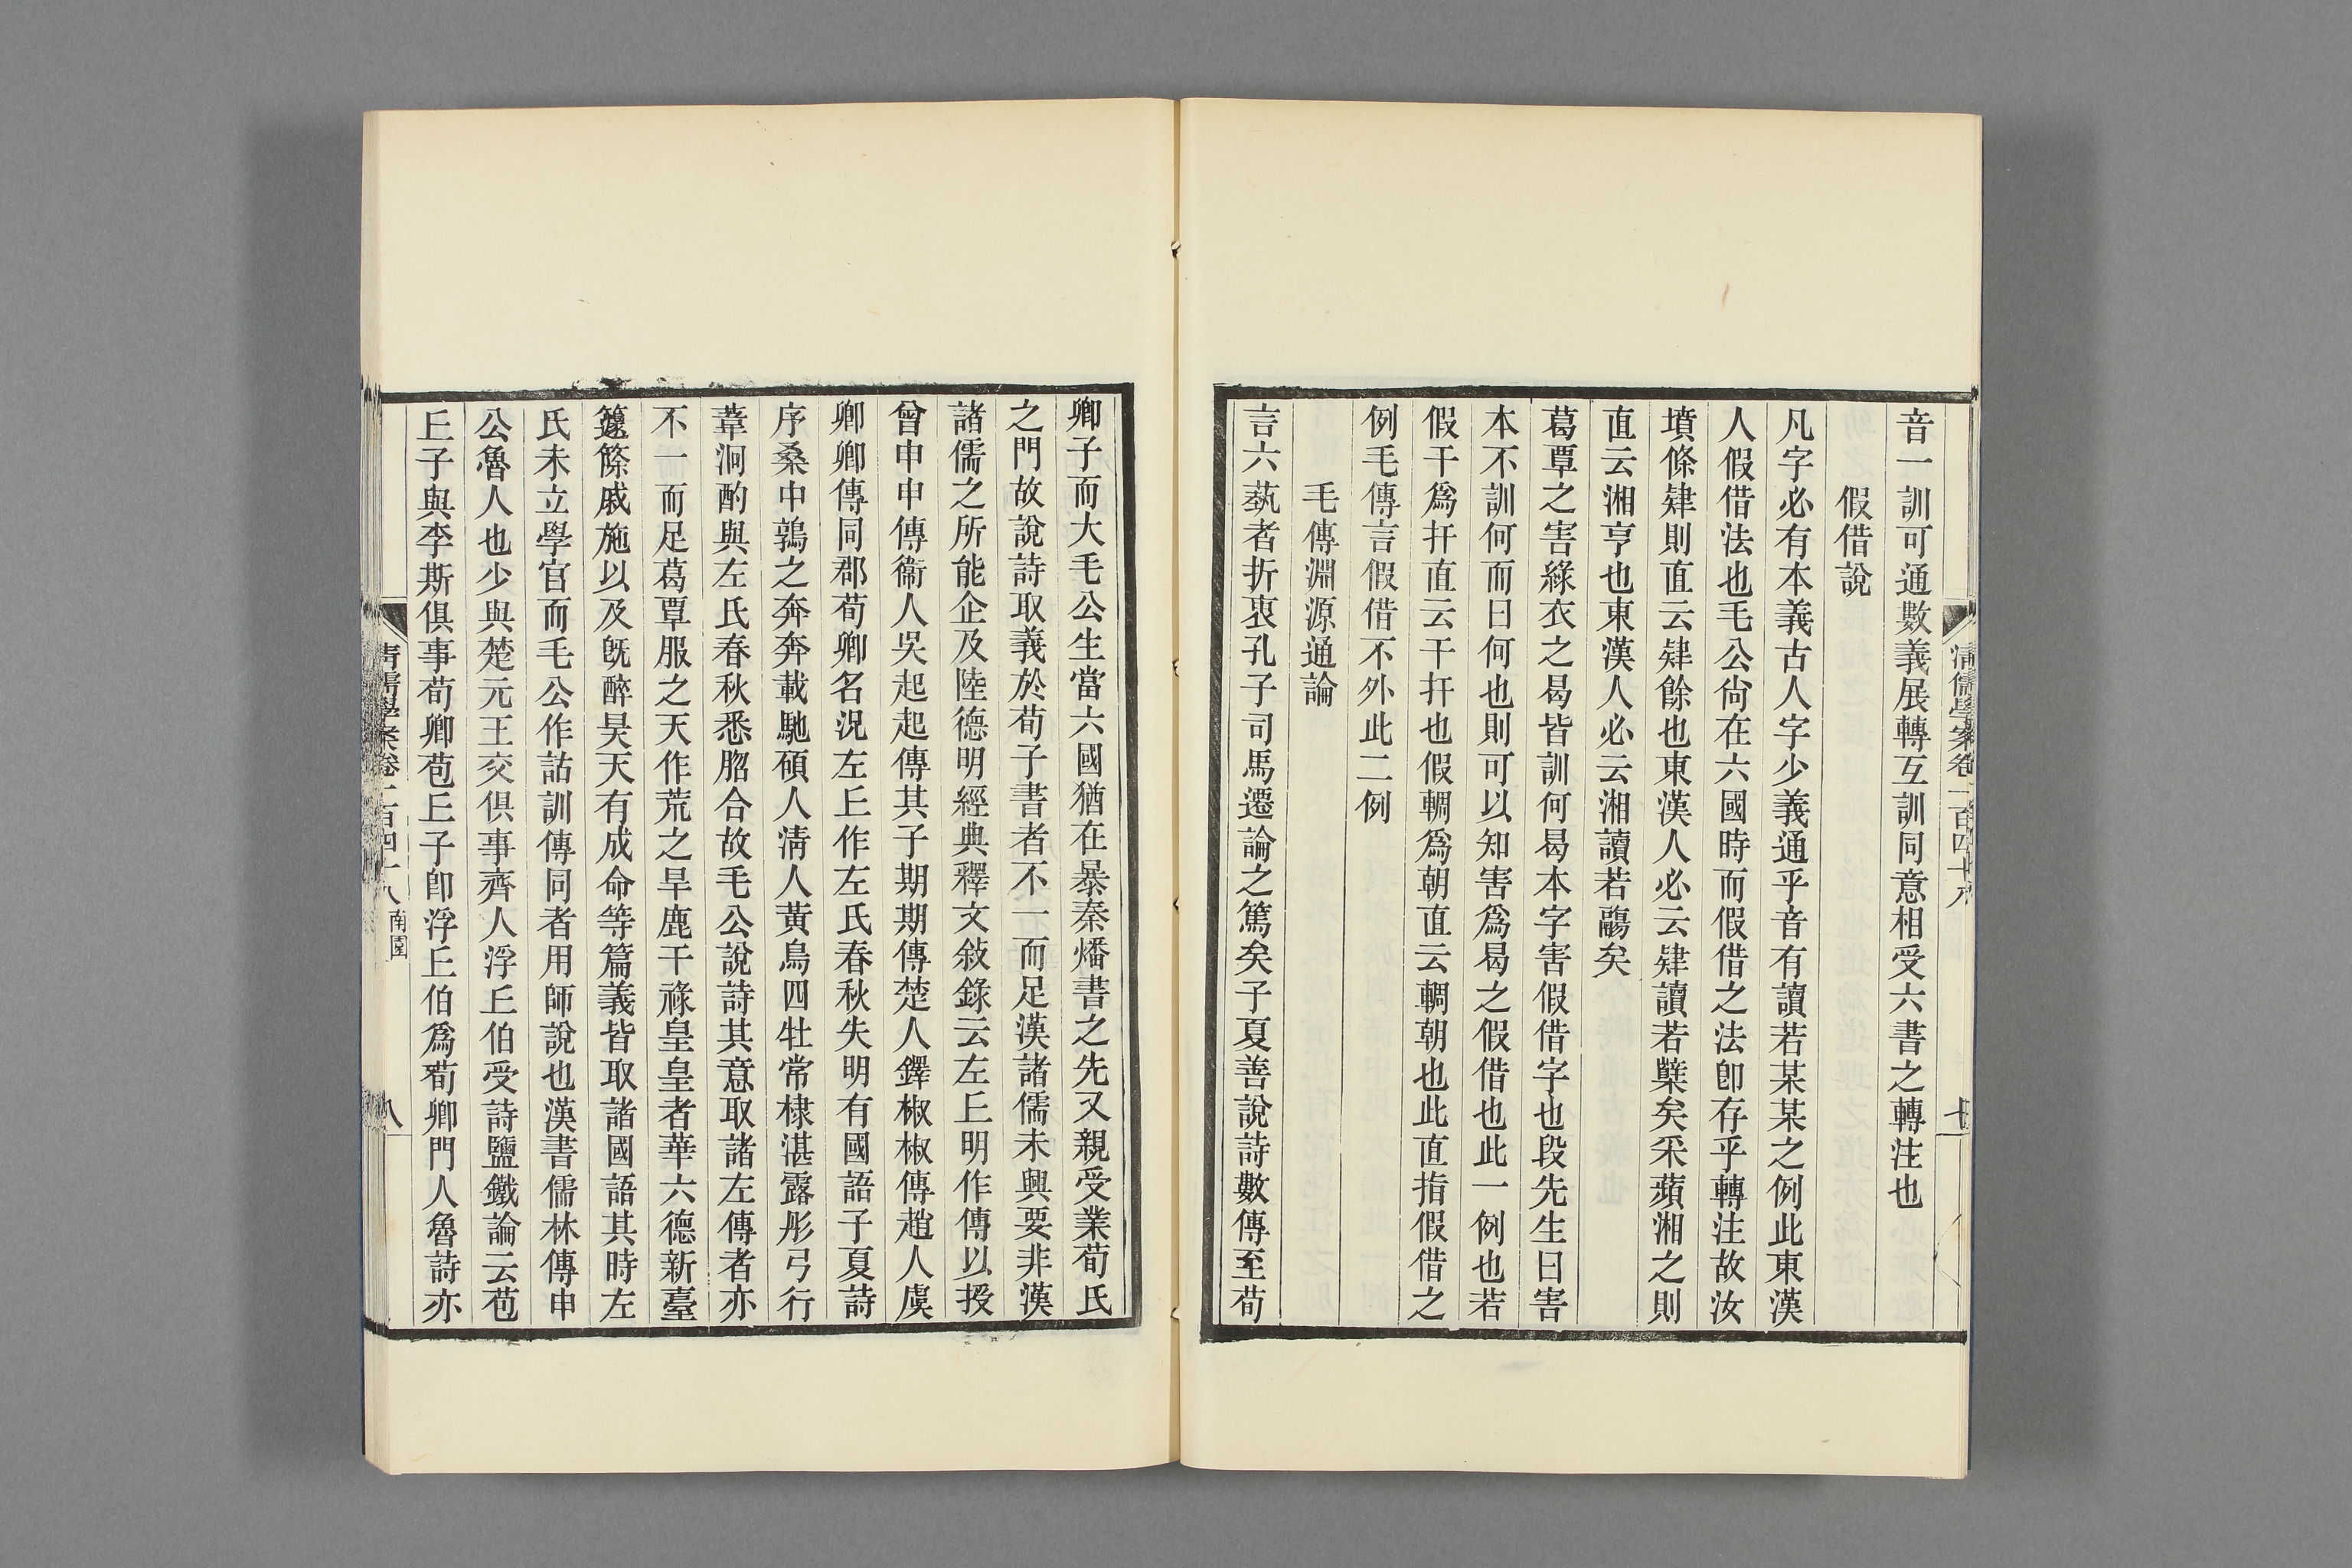 清儒學案卷一百四十八
七
音一訓可通數義展轉互訓同意相受六書之轉注也
假借說
凡字必有本義古人字少義通乎音有讀若某某之例此東漢
人假借法也毛公尙在六國時而假借之法卽存乎轉注故汝
墳條肄則直云肄餘也東漢人必云肄讀若櫱矣采蘋湘之則
直云湘亨也東漢人必云湘讀若鬺矣
葛覃之害綠衣之曷皆訓何曷本字害假借字也段先生曰害
本不訓何而曰何也則可以知害爲曷之假借也此一例也若
假干爲扞直云干扞也假輖爲朝直云輖朝也此直指假借之
例毛傳言假借不外此二例
毛傳淵源通論
言六蓺者折衷孔子司馬遷論之篤矣子夏善說詩數傳至荀
卿子而大毛公生當六國猶在暴秦燔書之先又親受業荀氏
之門故說詩取義於荀子書者不一而足漢諸儒未興要非漢
諸儒之所能企及陸德明經典釋文敍錄云左丘明作傳以授
曾申申傳衞人吳起起傳其子期期傳楚人鐸椒椒傳趙人虞
卿卿傳同郡荀卿名況左丘作左氏春秋失明有國語子夏詩
序桑中鶉之奔奔載馳碩人淸人黃鳥四牡常棣湛露彤弓行
葦泂酌與左氏春秋悉脗合故毛公說詩其意取諸左傳者亦
不一而足葛覃服之天作荒之旱鹿干祿皇皇者華六德新臺
籧篨戚施以及旣醉昊天有成命等篇義皆取諸國語其時左
氏未立學官而毛公作詁訓傳同者用師說也漢書儒林傳申
公魯人也少與楚元王交俱事齊人浮丘伯受詩鹽鐵論云苞
丘子與李斯俱事荀卿苞丘子卽浮丘伯爲荀卿門人魯詩亦
清儒學案卷一百四十八
南園
八